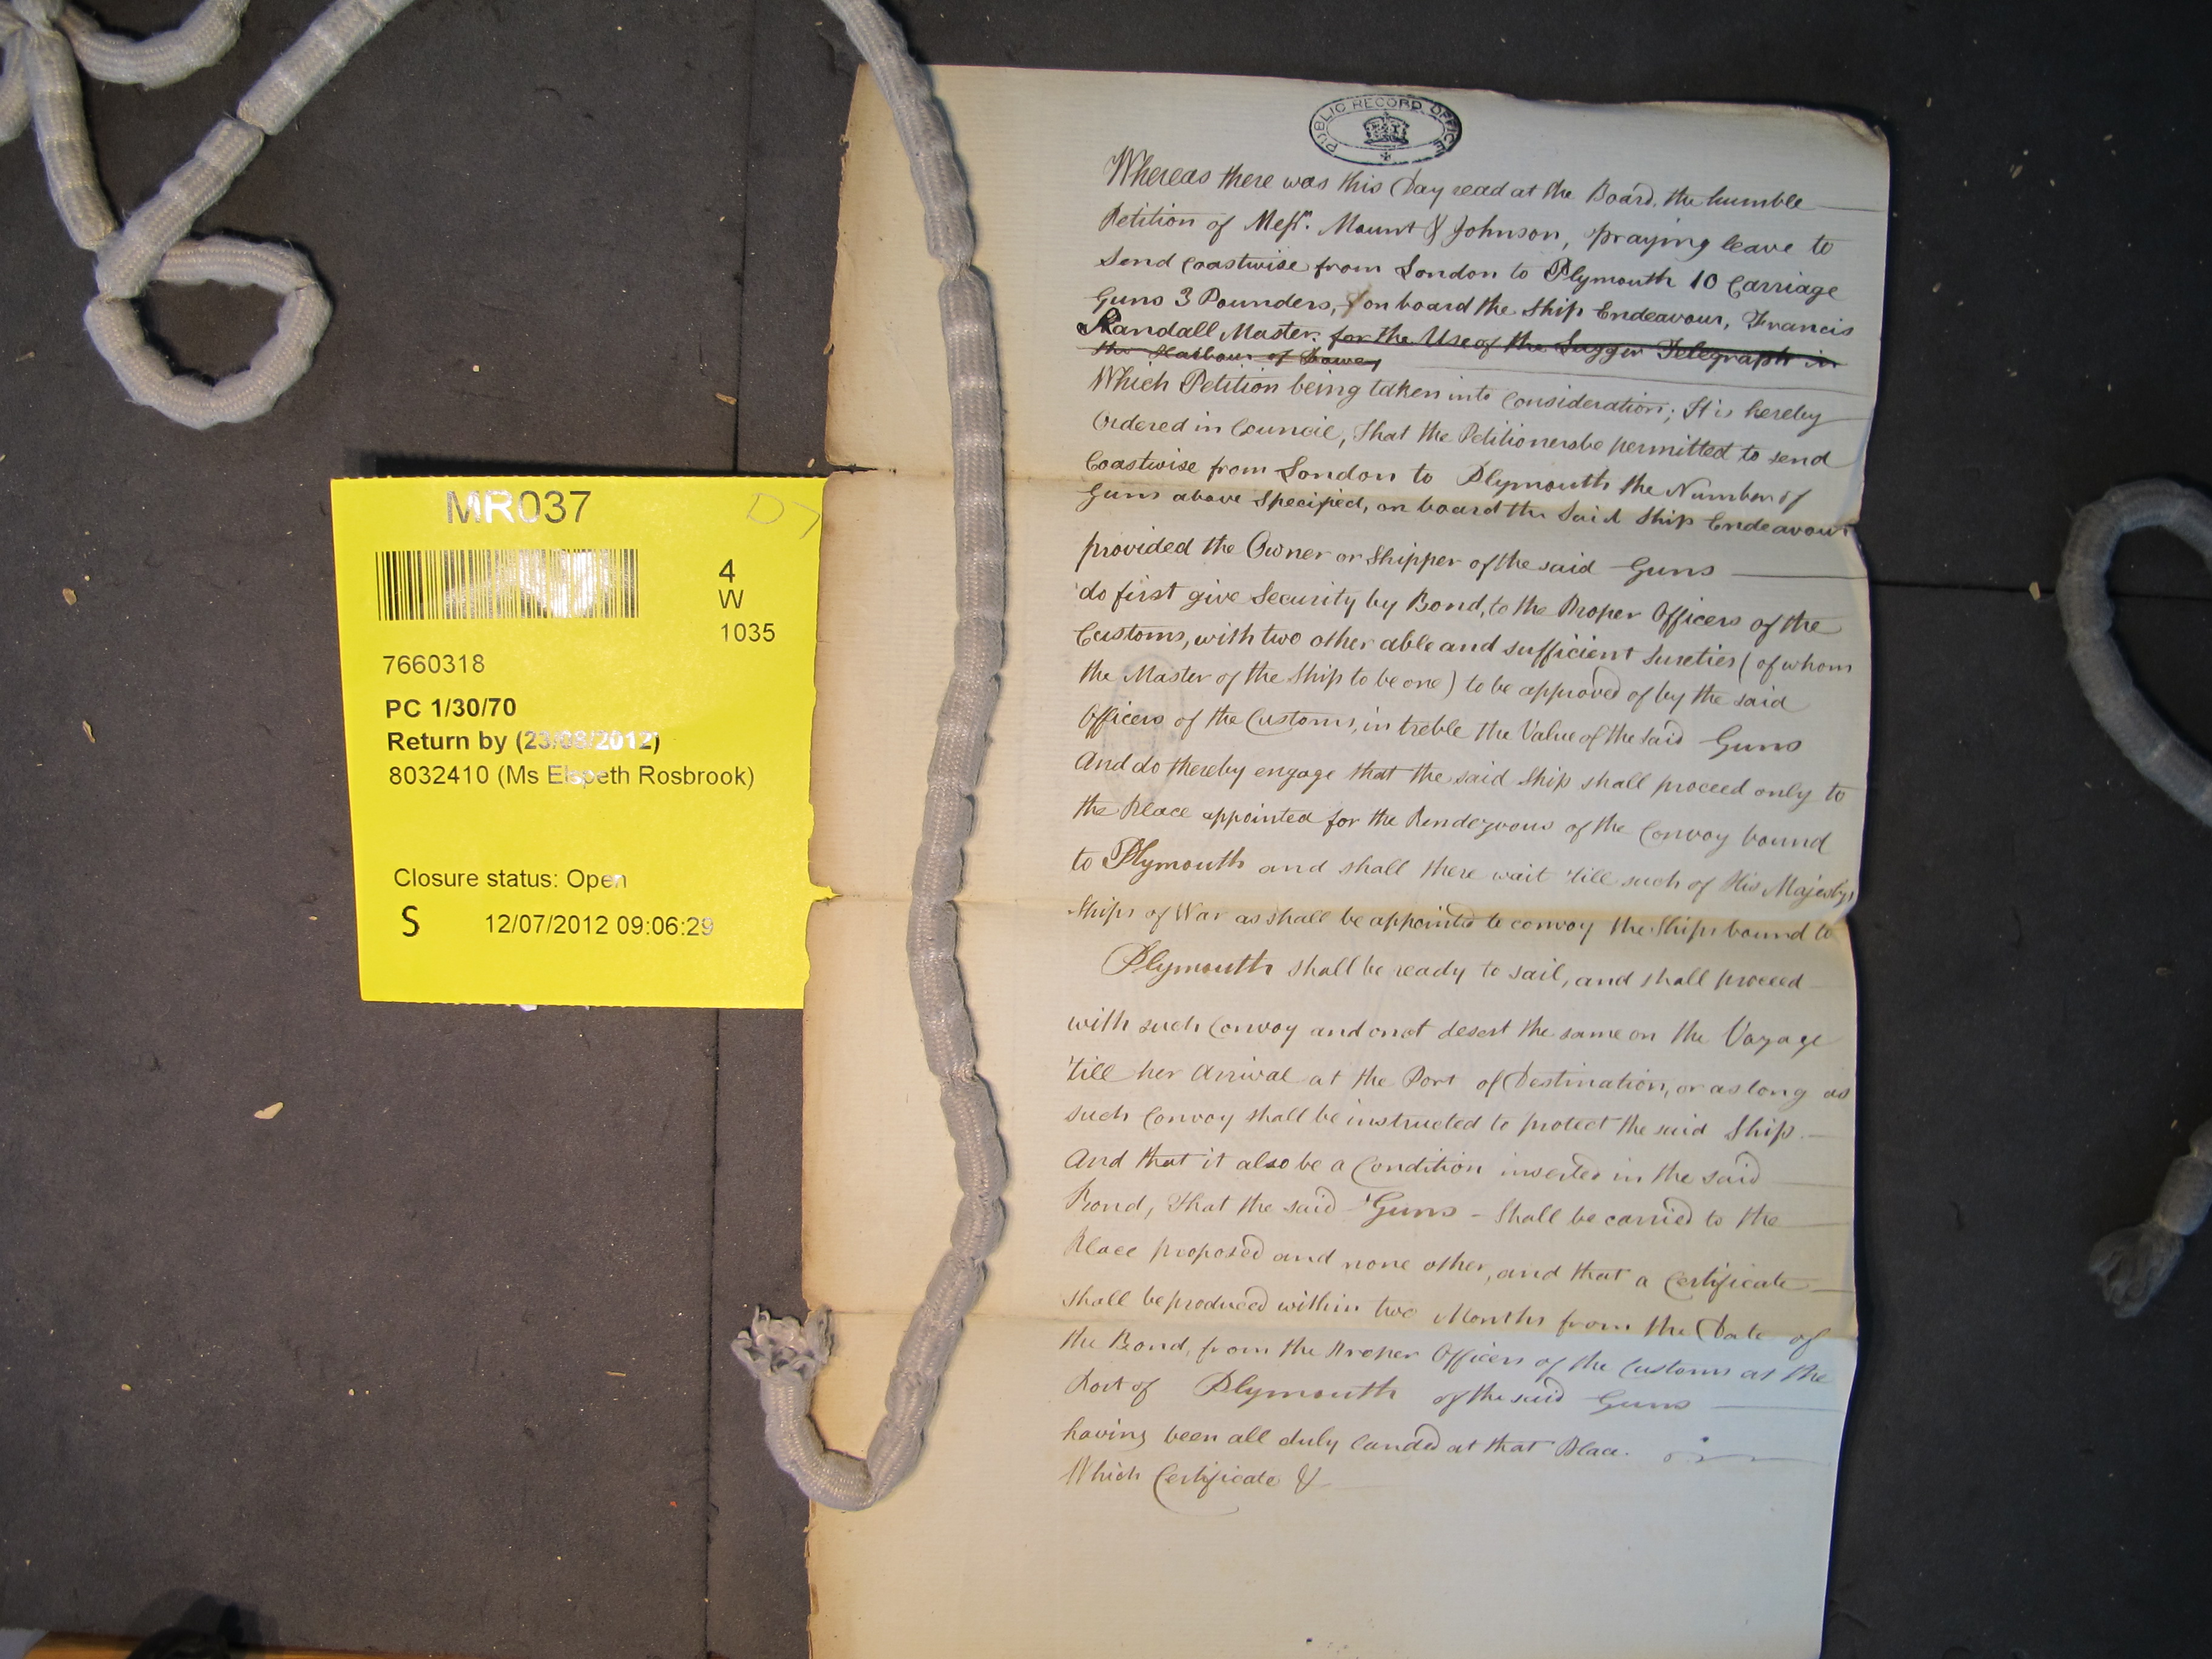 PUBLIC RECORD OFFICE
Whereas there was this Day read at the Board, the humble
Petition of Messrs. Mount & Johnson, praying leave to
Send Coastwise from London to Plymouth 10 Carriage
Guns 3 Pounders, on board the Ship Endeavour, Francis
Randall Master. for the Use of the Lugger Telegraph in
the Harbour of Fowey
Which Petition being taken into Consideration; It is hereby
Ordered in Council, That the Petitioners be permitted to send
Coastwise from London to Plymouth the Number of
Guns above Specified, on board the Said Ship Endeavour
provided the Owner or Shipper of the said Guns
do first give Security by Bond, to the Proper Officers of the
Customs, with two other able and sufficient Sureties (of whom
the Master of the Ship to be one) to be approved of by the said
Officers of the Customs, in treble the Value of the said Guns
And do thereby engage that the said Ship shall proceed only to
the Place appointed for the Rendezvous of the Convoy bound
to Plymouth and shall there wait 'till such of His Majestys
Ships of War as shall be appointed to convoy the Ships bound to
Plymouth shall be ready to sail, and shall proceed
with such Convoy and not desert the same on the Voyage
'till her Arrival at the Port of Destination, or as long as
such Convoy shall be instructed to protect the said Ship.
And that it also be a Condition inserted in the said
Bond, That the said Guns - Shall be carried to the
Place proposed and none other, and that a Certificate
shall be produced within two Months from the Date of
the Bond, from the Proper Officers of the Customs at the
Port of Plymouth of the said Guns
having been all duly landed at that Place.
Which Certificate &
MR037
D7
4
W
1035
7660318
PC 1/30/70
Return by (23/08/2012)
8032410 (Ms Elspeth Rosbrook)
Closure status: Open
S 12/07/2012 09:06:29